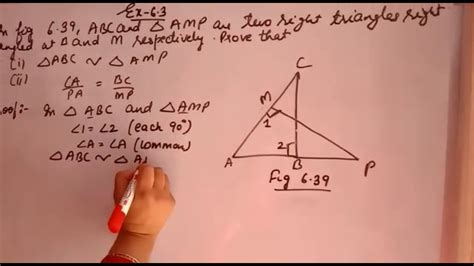 Ex-6.3
In fig 6.39, ABC and △ AMP are two right triangles right
angled at B and M respectively. Prove that
(i) △ABC ~ △AMP
(ii) CA/PA = BC/MP
Proof:- In △ABC and △AMP
∠1 = ∠2 (each 90°)
∠A = ∠A (common)
△ABC ~ △ A
C
M
1
2
A
B
P
Fig 6.39